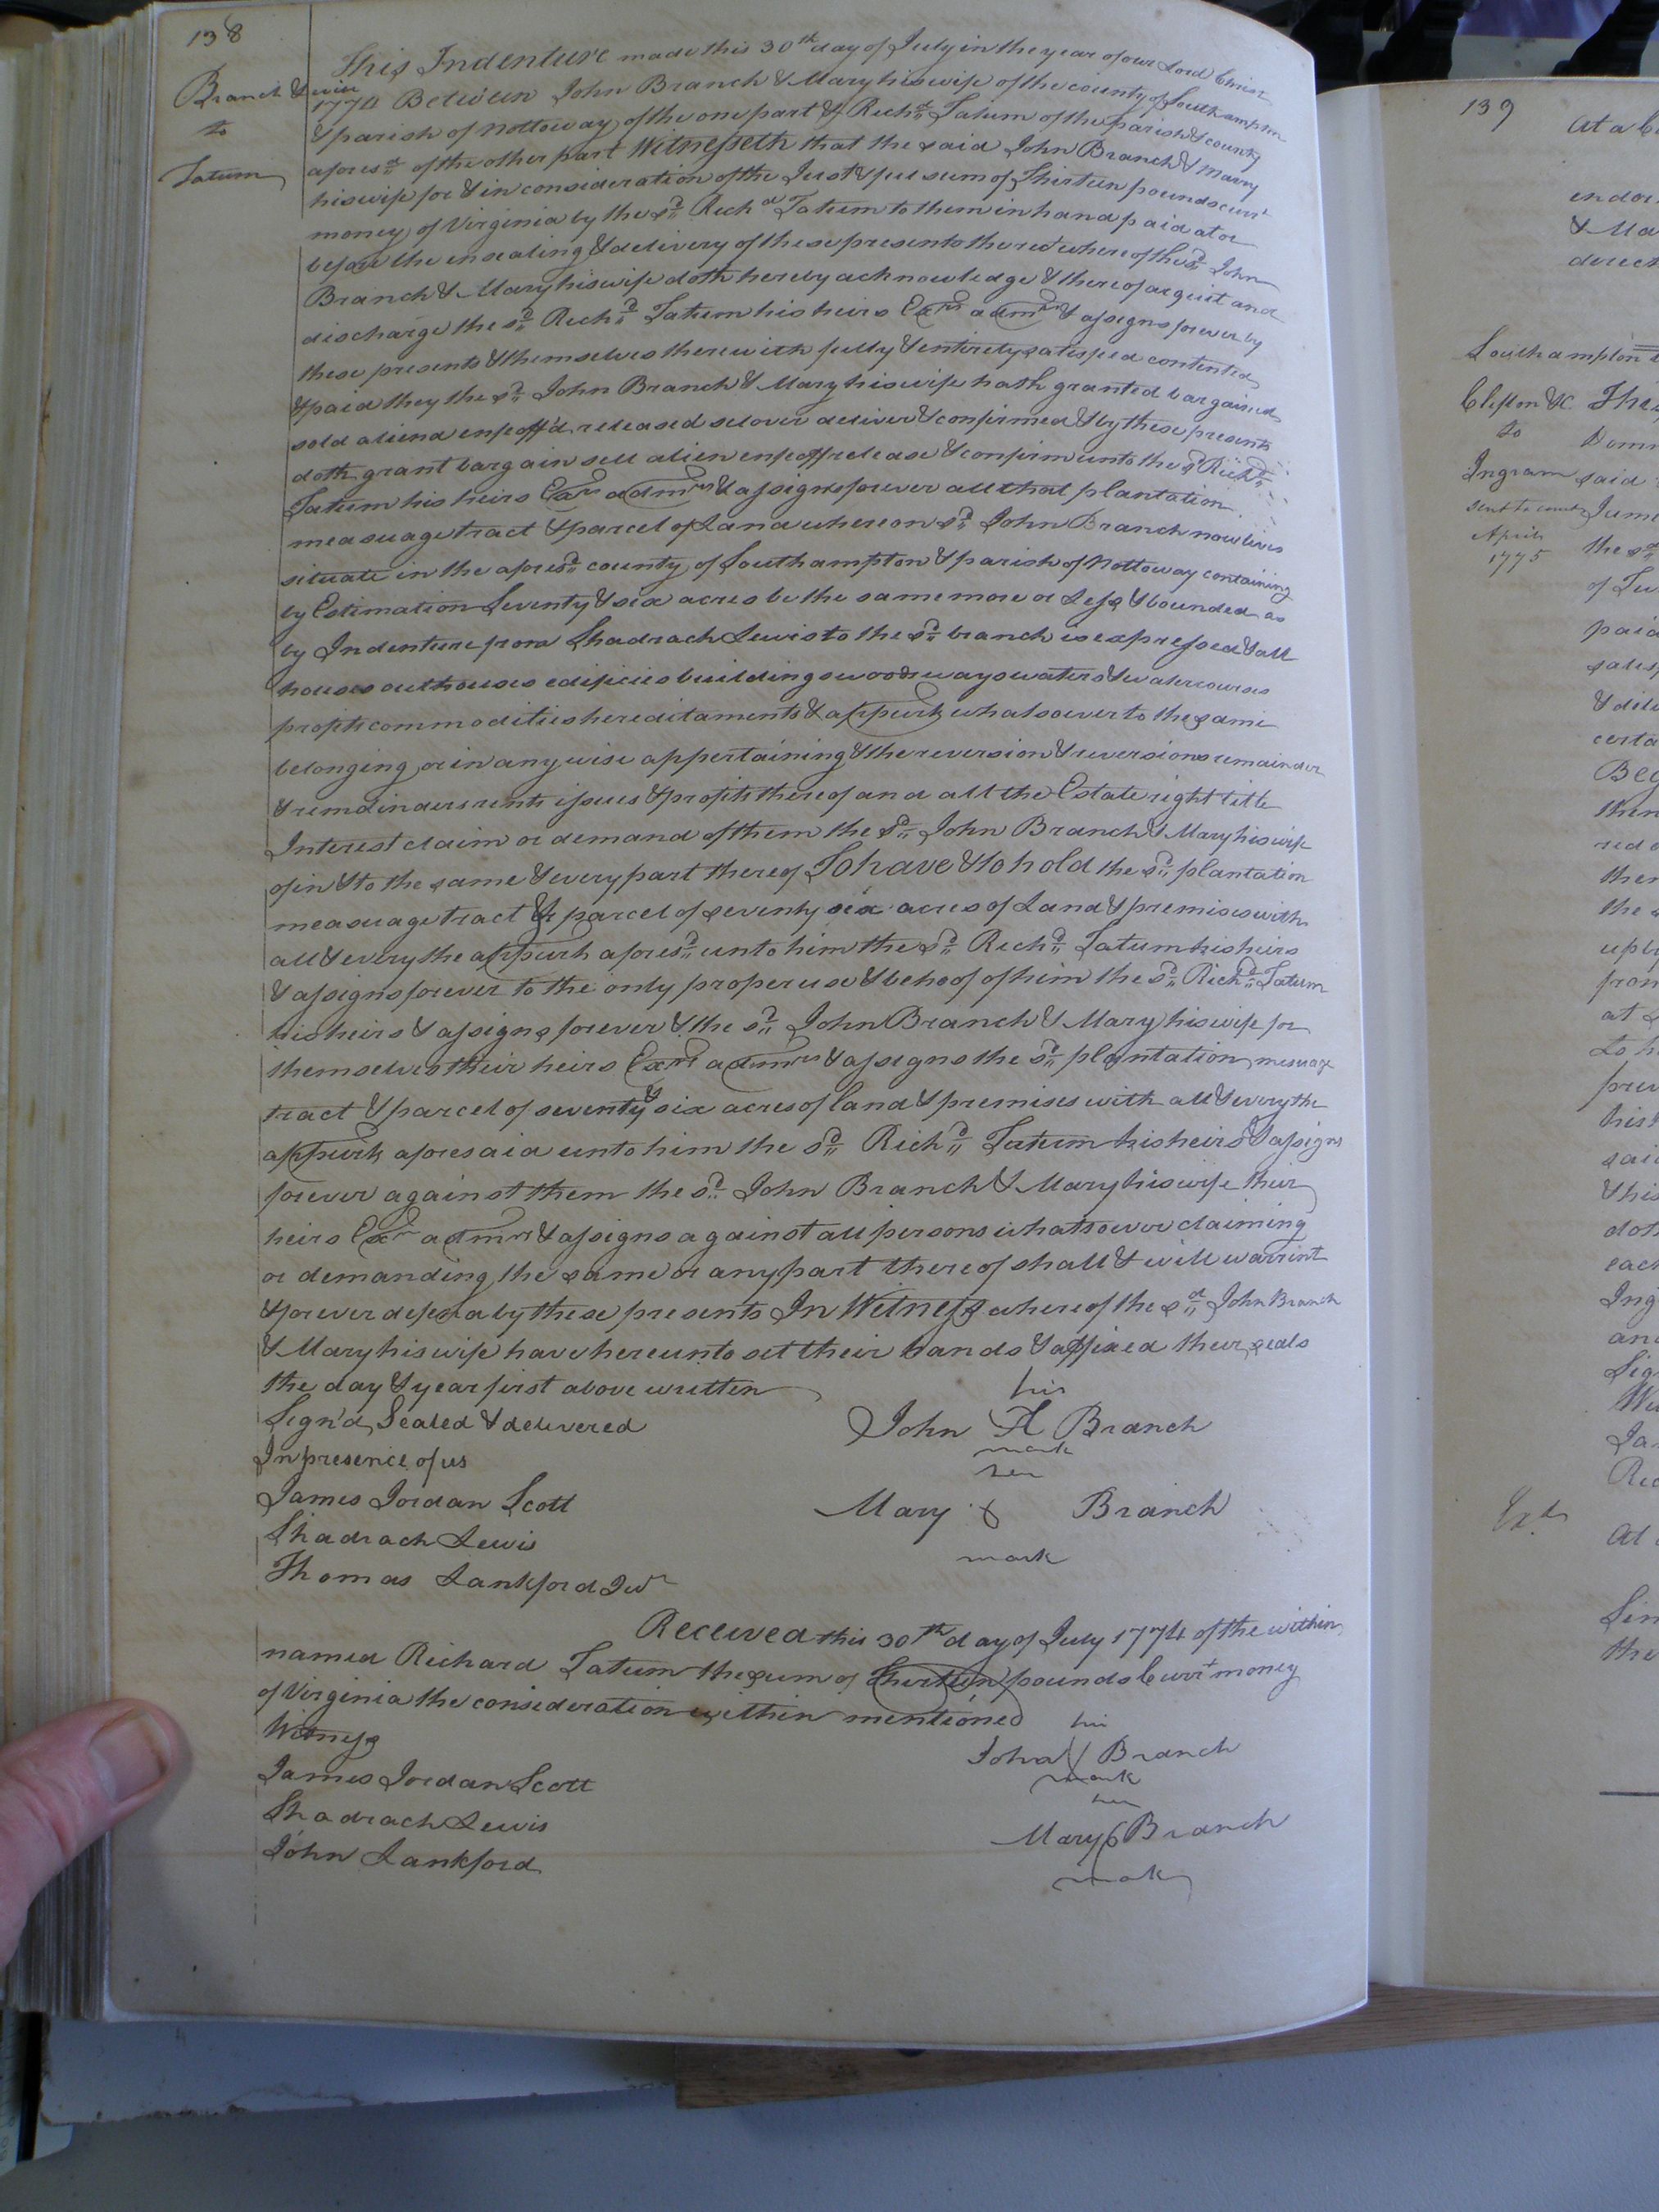 138
Branch & wife
to
Tatum
This Indenture made this 30th day of July in the year of our Lord Christ
1774 Between John Branch & Mary his wife of the county of Southampton
& parish of Nottoway of the one part & Richd Tatum of the parish & county
aforesd of the other part Witnesseth that the said John Branch & Marry
his wife for & in consideration of the Just & full sum of Thirteen pounds curr't
money of Virginia by the sd Richd Tatum to them in hand paid at or
before the ensealing & delivery of these presents the rec't whereof the sd John
Branch & Mary his wife doth hereby acknowledge & thereof acquit and
discharge the sd Richd Tatum his heirs Exrs admrs & assigns forever by
these presents & themselves therewith fully & entirely satisfied contented
& paid they the sd John Branch & Mary his wife hath granted bargained
sold aliend enfeoff'd released deliver & confirmed & by these presents
doth grant bargain sell alien enfeoff release & confirm unto the sd Richd
Tatum his heirs Exrs admrs & assigns forever all that plantation
measuage tract & parcel of Land whereon sd John Branch now lives
situate in the aforesd county of Southampton & parish of Nottoway containing
by Estimation Seventy & six acres be the same more or Less & bounded as
by Indenture from Shadrach Lewis to the sd branch is expressed & all
houses outhouses edificies buildings woods ways waters & watercourses
profits commodities hereditaments & appurts whatsoever to the same
belonging or in any wise appertaining & the reversion & reversions remainder
& remainders rents issues & profits thereof and all the Estate right title
Interest claim or demand of them the sd John Branch & Mary his wife
of in & to the same & every part thereof To have & to hold the sd plantation
measuage tract & parcel of seventy six acres of Land & premises with
all & every the appurts aforesd unto him the sd Richd Tatum his heirs
& assigns forever to the only proper use & behoof of him the sd Richd Tatum
his heirs & assigns forever & the sd John Branch & Mary his wife for
themselves their heirs Exrs admrs & assigns the sd plantation mesuage
tract & parcel of seventy & six acres of land & premises with all & every the
appurts aforesaid unto him the sd Richd Tatum his heirs & assigns
forever against them the sd John Branch & Mary his wife their
heirs Exrs admrs & assigns against all persons whatsoever claiming
or demanding the same or any part thereof shall & will warrint
& forever defend by these presents In Witness whereof the sd John Branch
& Mary his wife have hereunto set their hands & affixed their seals
the day & year first above written
Sign'd Sealed & delivered
In presence of us
James Jordan Scott
Shadrach Lewis
Thomas Lankford Jur
his
John Branch
mark
her
Mary Branch
mark
Received this 30th day of July 1774 of the within
named Richard Tatum the sum of thirteen pounds Currt money
of Virginia the consideration within mentioned
Witness
James Jordan Scott
Shadrach Lewis
John Lankford
his
John Branch
mark
her
Mary Branch
mark
139
At a
Southampton
Clifton &C.
to
Ingram
sent to
April
1775
The
said
June
the sd
of
paid
&
certa
Beg
then
the
upon
from
at
to h
his
said
& his
doth
each
Ing
and
Sig
Wit
Ja
Rec
At
the